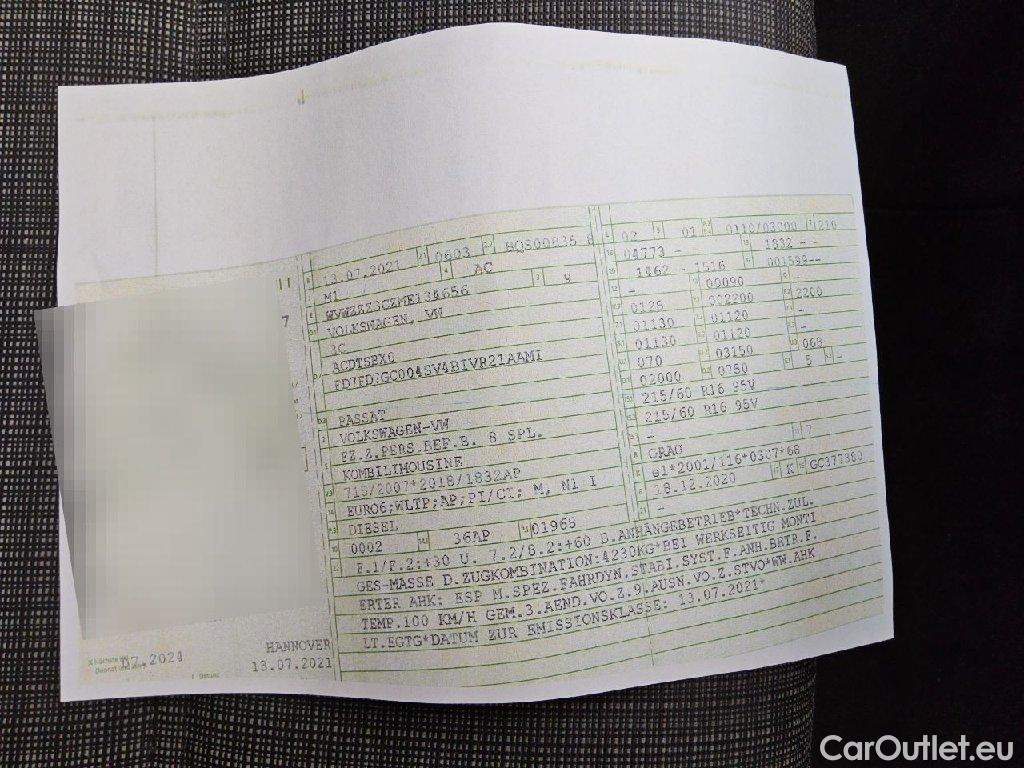 13.07.2021 0603
M1 AC
VOLKSWAGEN, VW
3C
ACDTSBX0
PASSAT
VOLKSWAGEN-VW
FZ.Z.PERS.BEF.B. 8 SPL.
KOMBILIMOUSINE
715/2007*2018/1832AP
EURO6;WLTP;AP;PI/CI; M, N1 I
DIESEL
0002 36AP 01968
F.1/F.2:+30 U. 7.2/8.2:+60 B.ANHÄNGEBETRIEB*TECHN.ZUL.
GES-MASSE D.ZUGKOMBINATION:4230KG*BEI WERKSEITIG MONTI
ERTER AHK: ESP M.SPEZ.FAHRDYN.STABI.SYST.F.ANH.BETR.F.
TEMP.100 KM/H GEM.3.AEND.VO.Z.9.AUSN.VO.Z.STVO*WW.AHK
LT.EGTG*DATUM ZUR EMISSIONSKLASSE: 13.07.2021*
02 01
04773 - 1832 --
1462 - 1516
- 00090
0129 002200 2200
01130 01120 -
01130 01120 -
070 03150 068
02000 0750 5 -
215/60 R16 95V
215/60 R16 95V
-
GRAU 7
18.12.2020 K
-
7
HANNOVER
13.07.2021
07.2024
CarOutlet.eu